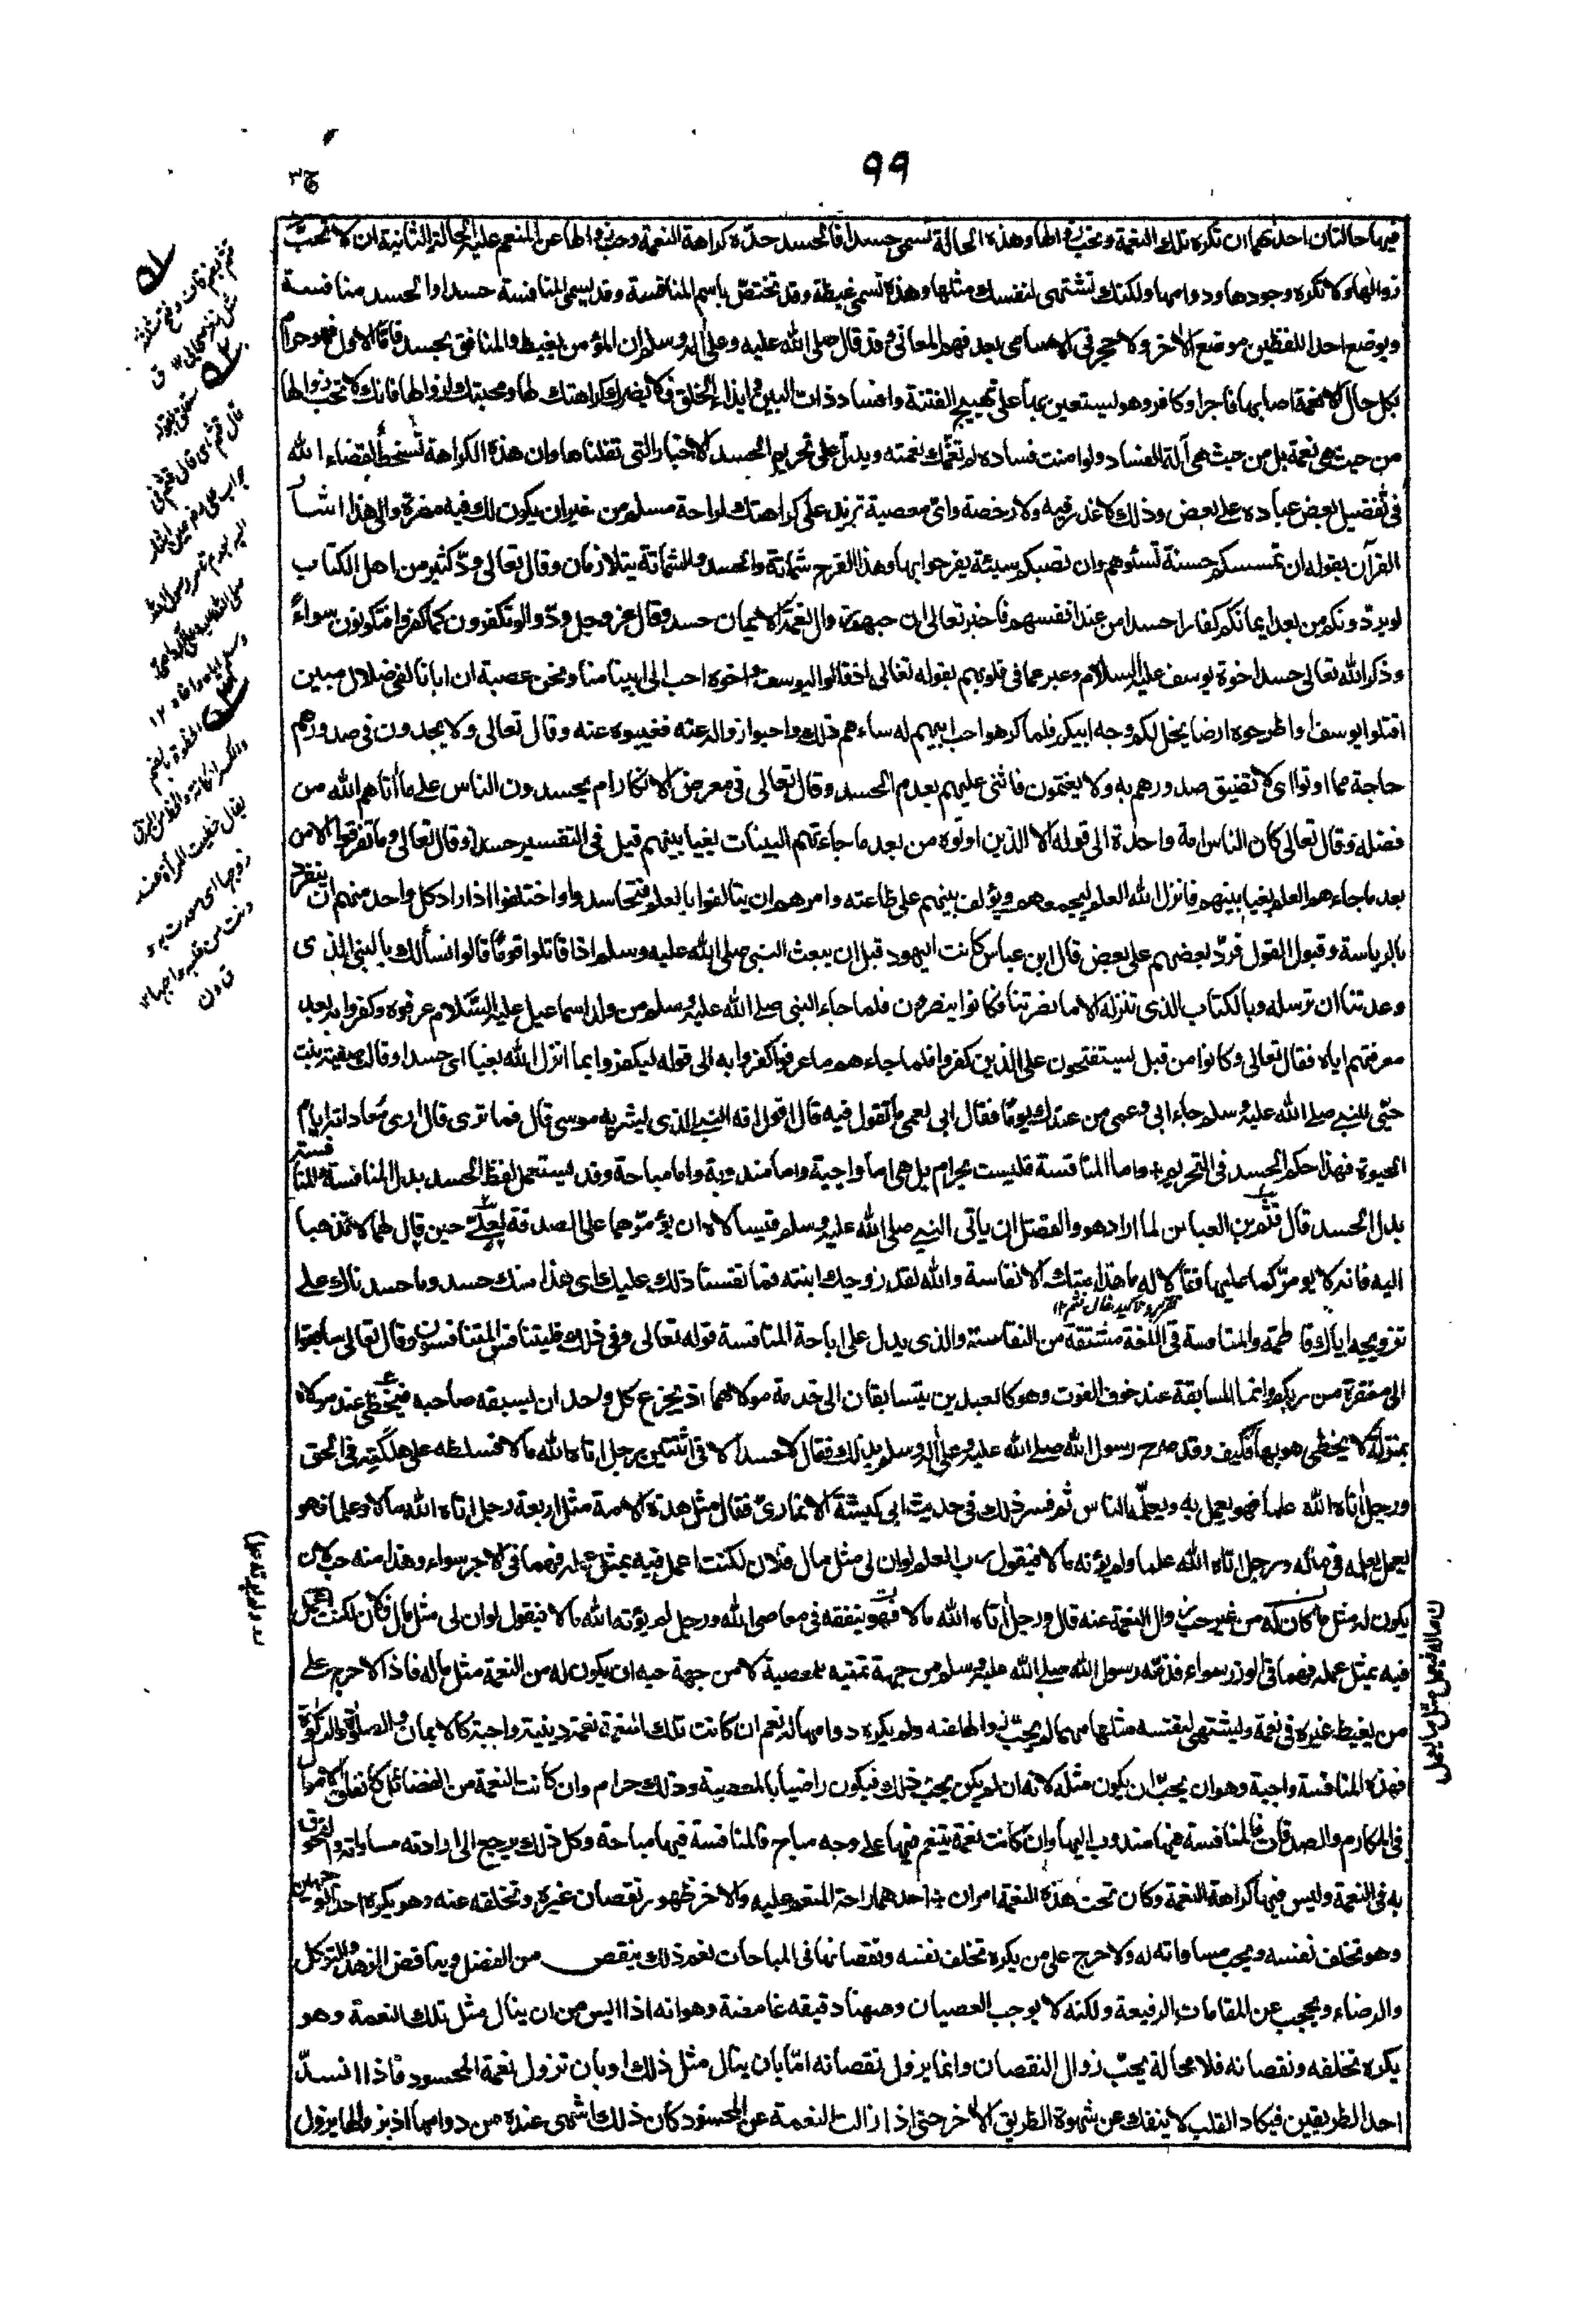 ٩٩
ج٣
فيها حالتان احدٰهما ان تكره تلك النعمة وتحب زوالها وهذه الحالة تسمى حسدا فالحسد حدّه كراهة النعمة وحب زوالها عن المنعم عليه الحالة الثانية ان لا تحبّ
زوالها ولا تكره وجودها ودوامها ولكنك تشتهى لنفسك مثلها وهذه تسمى غبطة وقد تختصّ باسم المنافسة وقد يسمى المنافسة حسدا والحسد منافسة
ويوضع احد اللفظين موضع الاٰخر ولا حجر فى الاسامى بعد فهم المعانى وقد قال صلى الله عليه وعلى اٰله وسلم ان المؤمن يغبط والمنافق يحسد فامّا الاول فهو حرام
بكل حال الا نعمة اصابها فاجر او كافر وهو يستعين بها على تهييج الفتنة وافساد ذات البين وايذاء الخلق فلا يضرك كراهتك لها ومحبتك لزوالها فانك لا تحب زوالها
من حيث هى نعمة بل من حيث هى آلة الفساد ولو امنت فساده لم تغمّك نعمته ويدلّ على تحريم الحسد الاخبار التى نقلناها وان هذه الكراهة تسخط لقضاء الله
فى تفضيل بعض عباده على بعض وذلك لا عذر فيه ولا رخصة واىّ معصية تزيد على كراهتك لراحة مسلم من غير ان يكون لك فيه مضرة والى هذا اشار
القرآن بقوله ان تمسسكم حسنة تسئوهم وان تصبكم سيئة يفرحوا بها وهذا الفرح شماتة والحسد والشماتة يتلازمان وقال تعالى ودّ كثير من اهل الكتاب
لو يردّونكم من بعد ايمانكم كفارا حسدا من عند انفسهم فاخبر تعالى ان حبهم زوال نعمة الايمان حسد وقال عز وجل ودّوا لو تكفرون كما كفروا فتكونون سواءً
وذكر الله تعالى حسد اخوة يوسف عليه السلام وعبر عما فى قلوبهم بقوله تعالى اذ قالوا ليوسف واخوه احب الى ابينا منا ونحن عصبة ان ابانا لفى ضلال مبين
اقتلوا يوسف او اطرحوه ارضا يخل لكم وجه ابيكم فلما كرهوا حب ابيهم له ساءهم ذلك واحبوا زواله عنه فغيبوه عنه وقال تعالى ولا يجدون فى صدورهم
حاجة مما اوتوا اى لا تضيق صدورهم به ولا يغتمون فاثنى عليهم بعدم الحسد وقال تعالى فى معرض الانكار ام يحسدون الناس على ما اٰتاهم الله من
فضله وقال تعالى كان الناس امة واحدة الى قوله الا الذين اوتوه من بعد ما جاءتهم البينات بغيا بينهم قيل فى التفسير حسدا وقال تعالى وما تفرقوا الا من
بعد ما جاءهم العلم بغيا بينهم فانزل الله العلم ليجمعهم ويؤلف بينهم على طاعته وامرهم ان يتالفوا بالعلم فتحاسدوا واختلفوا اذ اراد كل واحد منهم ان ينفرد
بالرياسة وقبول القول فردّ بعضهم على بعض قال ابن عباس كانت اليهود قبل ان يبعث النبى صلى الله عليه وسلم اذا قاتلوا قوما قالوا نسألك بالنبى الذى
وعدتنا ان ترسله وبالكتاب الذى تنزله الا ما نصرتنا فكانوا ينصرون فلما جاء النبى صلى الله عليه وسلم من ولد اسماعيل عليه السَّلام عرفوه وكفروا به بعد
معرفتهم اياه فقال تعالى وكانوا من قبل يستفتحون على الذين كفروا فلما جاءهم ما عرفوا كفروا به الى قوله ليكفروا بما انزل الله بغيا اى حسدا وقالت صفية بنت
حيّى للنبى صلى الله عليه وسلم جاء ابى وعمى من عندك يوما فقال ابى لعمى ما تقول فيه قال اقول انه النبى الذى بشر به موسى قال فما ترى قال ارى معاداته ايام
الحيوة فهذا حكم الحسد فى التحريم واما المنافسة فليست بحرام بل هى اما واجبة واما مندوبة واما مباحة وقد يستعمل لفظ الحسد بدل المنافسة والمنافسة
بدل الحسد قال قثم بن العباس لما اراد هو والفضل ان ياتى النبى صلى الله عليه وسلم فيسالاه ان يؤمّرهما على الصدقة لعلىّ حين قال لهما لا تذهبا
اليه فانه لا يومّركما عليها فقالا له ما هذا منك الا نفاسة والله لقد زوجك ابنته فما نفسنا ذلك عليك اى هذا منك حسد وما حسدناك على
تزويجه اياك فاطمة والمنافسة فى اللغة مشتقة من النفاسة والذى يدل على اباحة المنافسة قوله تعالى وفى ذلك فليتنافس المتنافسون وقال تعالى سابقوا
الى مغفرة من ربكم وانما المسابقة عند خوف الفوت وهو كالعبدين يتسابقان الى خدمة مولاهما اذ يجزع كل واحد ان يسبقه صاحبه فيحظى عند مولاه
بمنزلة لا يحظى هو بها فكيف وقد صرح رسول الله صلى الله عليه وعلى اٰله وسلم بذلك فقال لا حسد الا فى اثنتين رجل اٰتاه الله مالا فسلطه على هلكته فى الحق
ورجل اٰتاه الله علما فهو يعمل به ويعلّمه الناس ثم فسر ذلك فى حديث ابى كبشة الانمارىّ فقال مثل هذه الامة مثل اربعة رجل اٰتاه الله مالا وعلما فهو
يعمل بعلمه فى ماله ورجل اٰتاه الله علما ولم يؤته مالا فيقول رب العلم لو ان لى مثل مال فلان لكنت اعمل فيه بمثل عمله فهما فى الاجر سواء وهذا منه حب لان
يكون له مثل ما كان له من غير حب زوال النعمة عنه قال ورجل اٰتاه الله مالا فهو ينفقه فى معاصى الله ورجل لم يؤته الله مالا فيقول لو ان لى مثل مال فلان لكنت اعمل
فيه بمثل عمله فهما فى الوزر سواء فذمّه رسول الله صلى الله عليه وسلم من جهة تمنيه للمعصية لا من جهة حبه ان يكون له من النعمة مثل ماله فاذا لا حرج على
من يغبط غيره فى نعمة ويشتهى لنفسه مثلها مهما لم يحبّ زوالها عنه ولم يكره دوامها له نعم ان كانت تلك النعمة نعمة دينية واجبة كالايمان والصلوٰة والزكوٰة
فهذه المنافسة واجبة وهو ان يحبّ ان يكون مثله لانه ان لم يكن يحبّ ذلك فيكون راضيا بالمعصية وذلك حرام وان كانت النعمة من الفضائل كانفاق الاموال
فى المكارم والصدقات فالمنافسة فيها مندوب اليها وان كانت نعمة يتنعم فيها على وجه مباح فالمنافسة فيها مباحة وكل ذلك يرجع الى ارادته مساواته واللحوق
به فى النعمة وليس فيها كراهة النعمة وكان تحت هذه النعمة امران احدهما راحة المنعم عليه والاٰخر ظهور نقصان غيره وتخلفه عنه وهو يكره احد الوجهين
وهو تخلف نفسه ويحب مساواته له ولا حرج على من يكره تخلف نفسه ونقصانها فى المباحات نعم ذلك ينقص من الفضل ويناقض الزهد والتوكل
والرضاء ويحجب عن المقامات الرفيعة ولكنه لا يوجب العصيان وههنا دقيقه غامضة وهو انه اذا ايس من ان ينال مثل تلك النعمة وهو
يكره تخلفه ونقصانه فلا محالة يحبّ زوال النقصان وانما يزول نقصانه امّا بان ينال مثل ذلك او بان تزول نعمة المحسود فاذا انسدّ
احد الطريقين فيكاد القلب لا ينفك عن شهوة الطريق الاٰخر حتى اذا زالت النعمة عن المحسود كان ذلك اشهى عنده من دوامها اذ بزوالها يزول